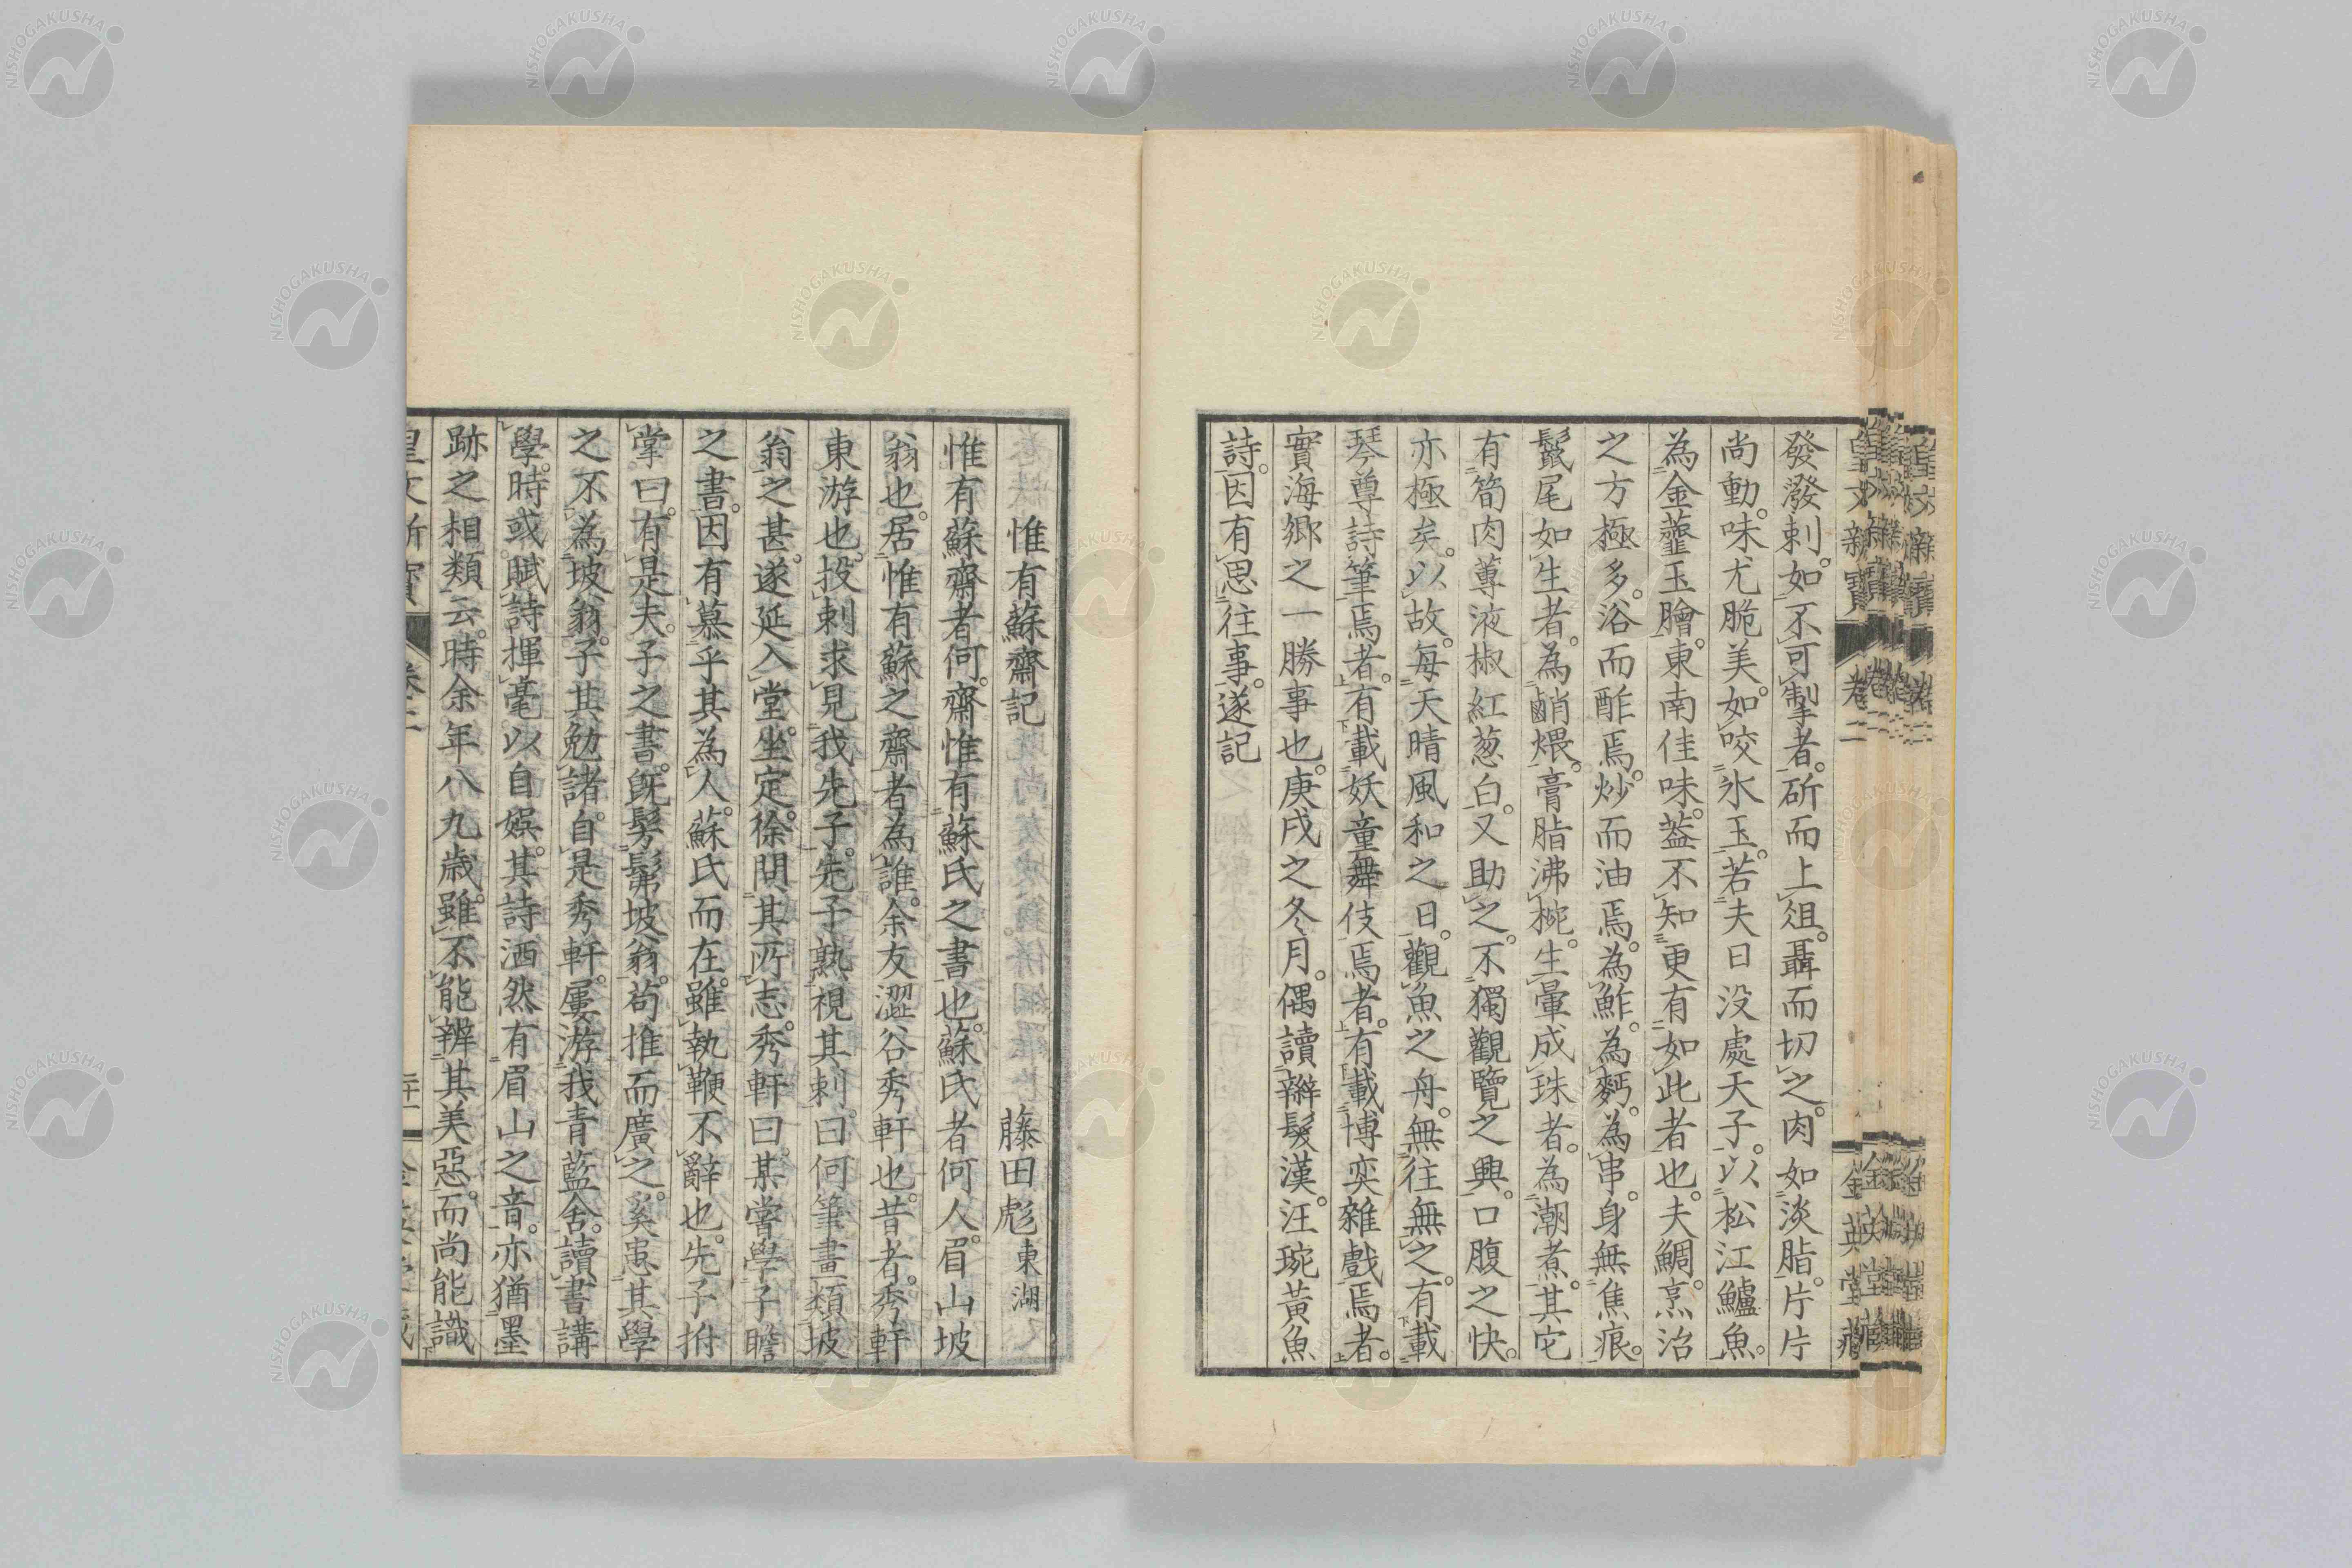 皇文新寶
卷二
金英堂藏
發潑剌。如不可掣者。斫而上俎。聶而切之。肉如淡脂。片片
尚動。味尤脆美。如咬氷玉。若夫日没處天子。以松江鱸魚。
為金虀玉膾。東南佳味。蓋不知更有如此者也。夫鯛。烹治
之方極多。浴而酢焉。炒而油焉。為鮓。為麪。為串。身無焦痕。
鬣尾如生者。為鹵煨。膏脂沸椀。生暈成珠者。為潮煮。其它
有筍肉蓴液椒紅葱白。又助之。不獨觀覽之興。口腹之快。
亦極矣。以故。每天晴風和之日。觀魚之舟。無往無之。有載
琴尊詩筆焉者。有載妖童舞伎焉者。有載博奕雜戲焉者。
實海鄉之一勝事也。庚戌之冬月。偶讀辮髮漢。汪琬黃魚
詩。因有思往事。遂記
惟有蘇齋記
藤田彪 東湖
惟有蘇齋者何。齋惟有蘇氏之書也。蘇氏者何人。眉山坡
翁也。居惟有蘇之齋者為誰。余友澀谷秀軒也。昔者。秀軒
東游也。投刺求見我先子。先子熟視其刺曰。何筆畫類坡
翁之甚。遂延入堂。坐定。徐問其所志。秀軒曰。某嘗學子瞻
之書。因有慕乎其為人。蘇氏而在。雖執鞭不辭也。先子拊
掌曰。有是夫。子之書。既髣髴坡翁。苟推而廣之。奚患其學
之不為坡翁。子其勉諸。自是秀軒。屢游我青藍舍。讀書講
學。時或賦詩揮毫以自娛。其詩洒然有眉山之音。亦猶墨
跡之相類云。時余年八九歲。雖不能辨其美惡。而尚能識
皇文新寶